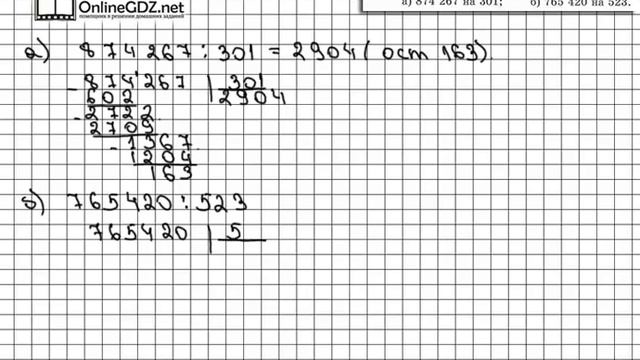 а) 874 267 на 301; б) 765 420 на 523.
OnlineGDZ.net
помощник в решении домашних заданий
а) 874267 : 301 = 2904 (ост 163).
- 874'267 | 301
602 2904
- 2722
2709
- 1367
1204
163
б) 765420 : 523
765420 | 5